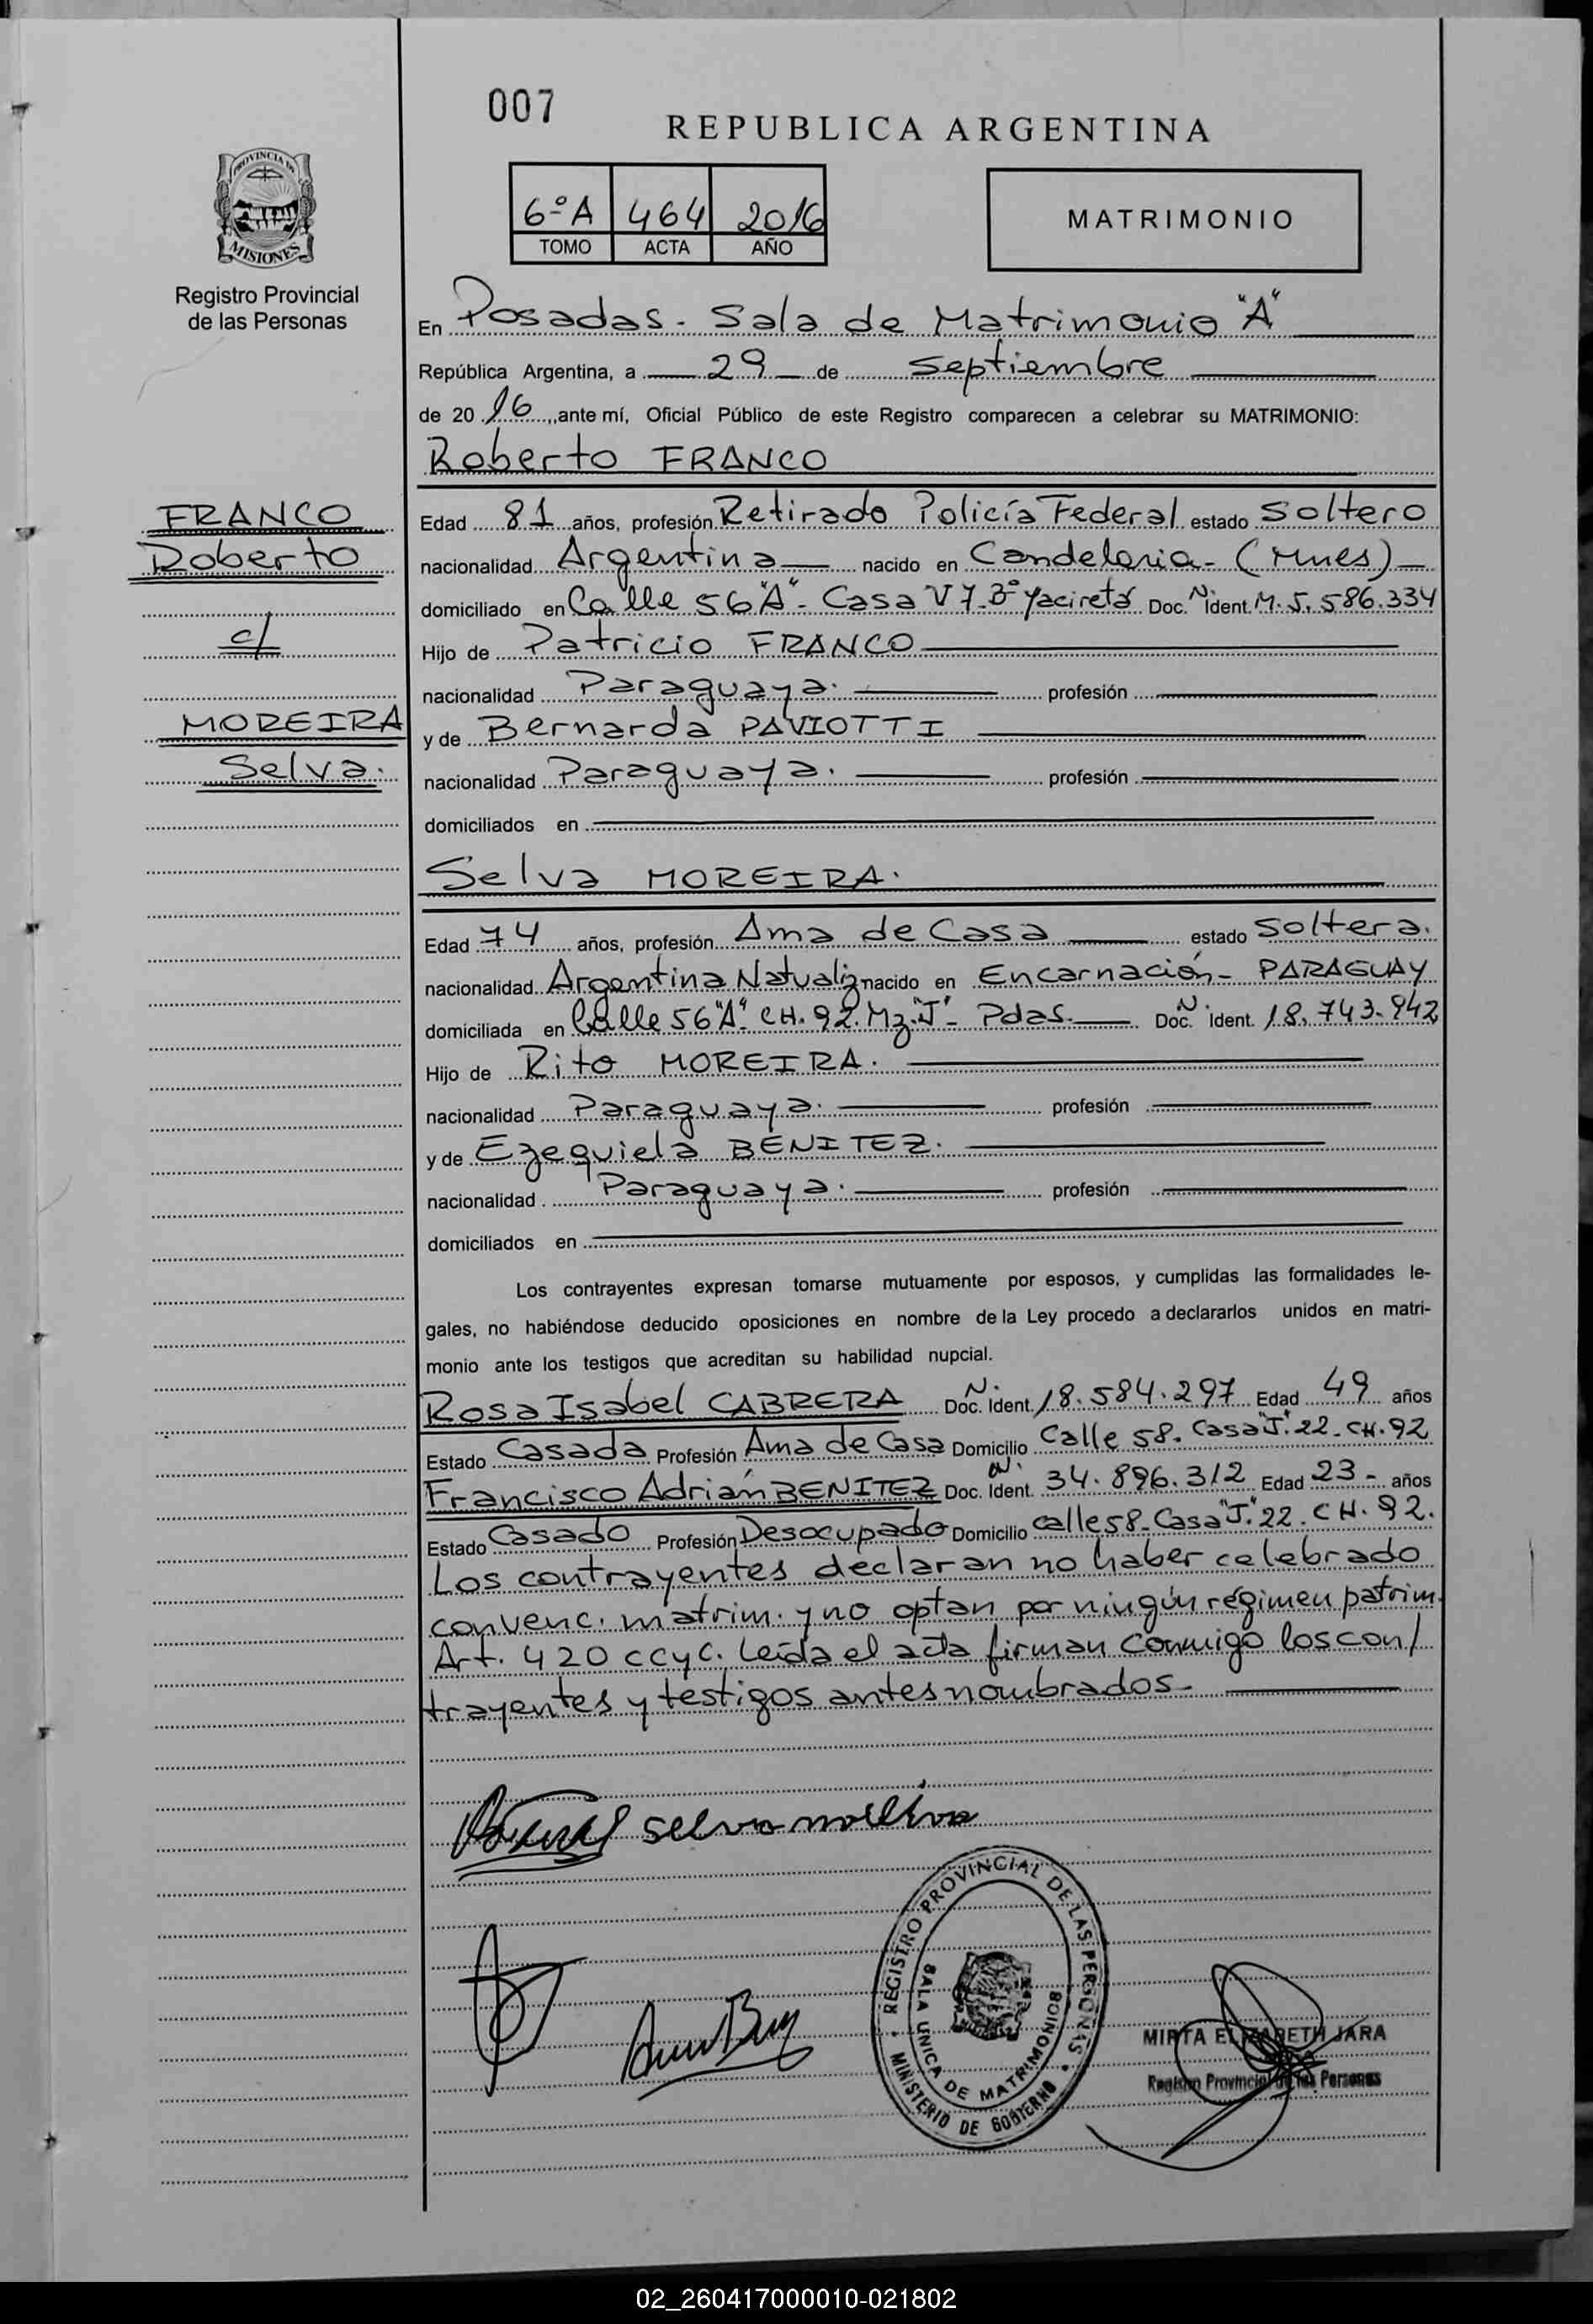 007
REPUBLICA ARGENTINA
PROVINCIA DE
MISIONES
Registro Provincial
de las Personas
6ºA 464 2016
TOMO ACTA AÑO
MATRIMONIO
En Posadas. Sala de Matrimonio "A"
República Argentina, a 29 de septiembre
de 2016, ante mí, Oficial Público de este Registro comparecen a celebrar su MATRIMONIO:
Roberto FRANCO
FRANCO
Roberto
c/
MOREIRA
Selva.
Edad 81 años, profesión Retirado Policía Federal estado Soltero
nacionalidad Argentina nacido en Candelaria- (Mnes)
domiciliado en Calle 56"A"- Casa V 7-Bº Yacireta Doc. N ident. M. 5.586.334
Hijo de Patricio FRANCO
nacionalidad Paraguaya. profesión
y de Bernarda PAVIOTTI
nacionalidad Paraguaya. profesión
domiciliados en
Selva MOREIRA.
Edad 74 años, profesión Ama de Casa estado Soltera.
nacionalidad Argentina Natualiz nacido en Encarnación- PARAGUAY
domiciliada en Calle 56"A" CH. 92. Mz."J"- Pdas. Doc. N ident. 18.743.942
Hijo de Rito MOREIRA.
nacionalidad Paraguaya. profesión
y de Ezequiela BENITEZ.
nacionalidad Paraguaya. profesión
domiciliados en
Los contrayentes expresan tomarse mutuamente por esposos, y cumplidas las formalidades le-
gales, no habiéndose deducido oposiciones en nombre de la Ley procedo a declararlos unidos en matri-
monio ante los testigos que acreditan su habilidad nupcial.
Rosa Isabel CABRERA Doc. N. Ident. 18.584.297 Edad 49 años
Estado Casada Profesión Ama de Casa Domicilio Calle 58. Casa"J".22-CH.92
Francisco Adrián BENITEZ Doc. N. Ident. 34.896.312 Edad 23- años
Estado Casado Profesión Desocupado Domicilio calle 58-Casa"J".22.CH.92.
Los contrayentes declaran no haber celebrado
convenc. matrim. y no optan por ningún régimen patrim.
Art. 420 ccyc. Leída el acta firman conmigo los con/
trayentes y testigos antes nombrados-
selva moreira
REGISTRO PROVINCIAL DE LAS PERSONAS
SALA UNICA DE MATRIMONIOS
MINISTERIO DE GOBIERNO
MIRTA ELIZABETH JARA
Registro Provincial de las Personas
02_260417000010-021802